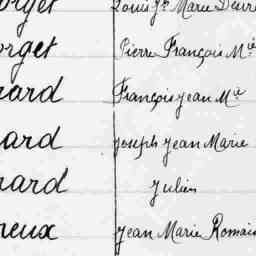 orget Louis Jh Marie Désiré
orget Pierre François Mie
nard François Jean Mie
ard Joseph Jean Marie
nard Julien
reux Jean Marie Romain